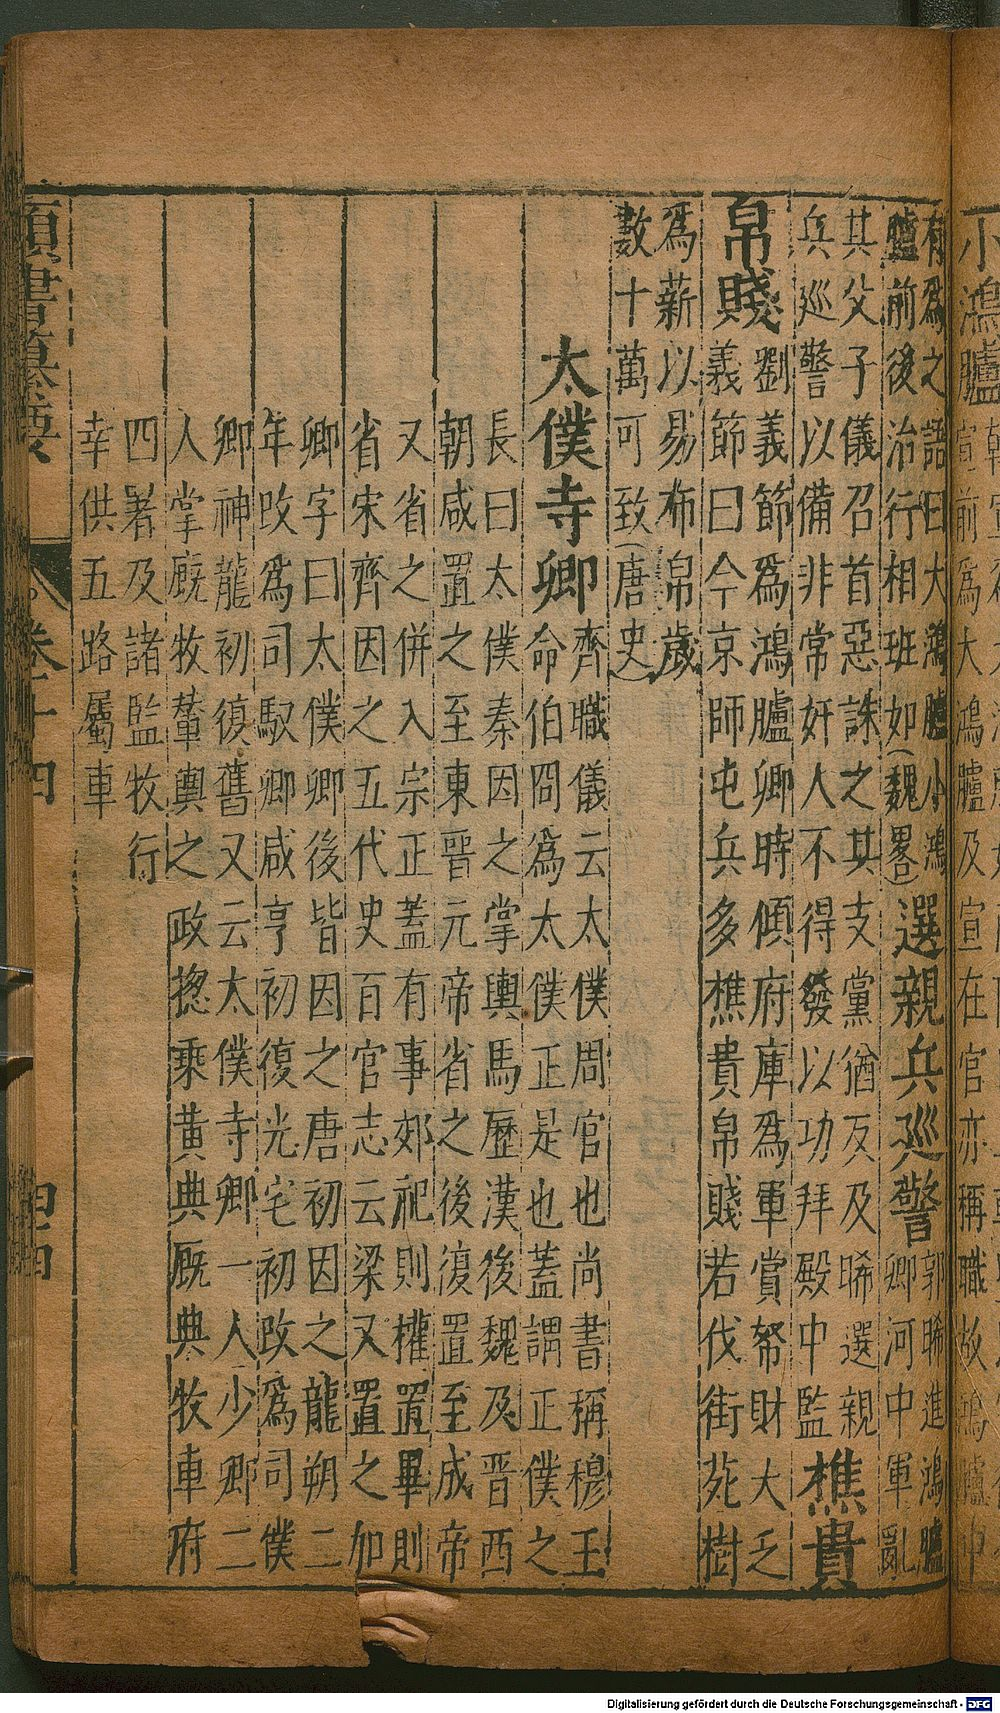 有爲之語曰大鴻臚小鴻
臚前後治行相班如(魏畧)選親兵巡警郭晞進鴻臚
卿河中軍亂
其父子儀召首惡誅之其支黨猶反及晞選親
兵巡警以備非常奸人不得發以功拜殿中監樵貴
帛賤劉義節爲鴻臚卿時傾府庫爲軍賞帑財大乏
義節曰今京師屯兵多樵貴帛賤若伐街苑樹
爲薪以易布帛歲
數十萬可致(唐史)
太僕寺卿齊職儀云太僕周官也尚書稱穆王
命伯冏爲太僕正是也蓋謂正僕之
長曰太僕秦因之掌輿馬歷漢後魏及晋西
朝咸置之至東晉元帝省之後復置至成帝
又省之併入宗正蓋有事郊祀則權置畢則
省宋齊因之五代史百官志云梁又置之加
卿字曰太僕卿後皆因之唐初因之龍朔二
年改爲司馭卿咸亨初復光宅初改爲司僕
卿神龍初復舊又云太僕寺卿一人少卿二
人掌厩牧輦輿之政揔乘黃典厩典牧車府
四署及諸監牧行
幸供五路屬車
類書纂要
卷十四
四四
小鴻臚
宣前爲大鴻臚及宣在官亦稱職故鴻臚中
Digitalisierung gefördert durch die Deutsche Forschungsgemeinschaft - DFG